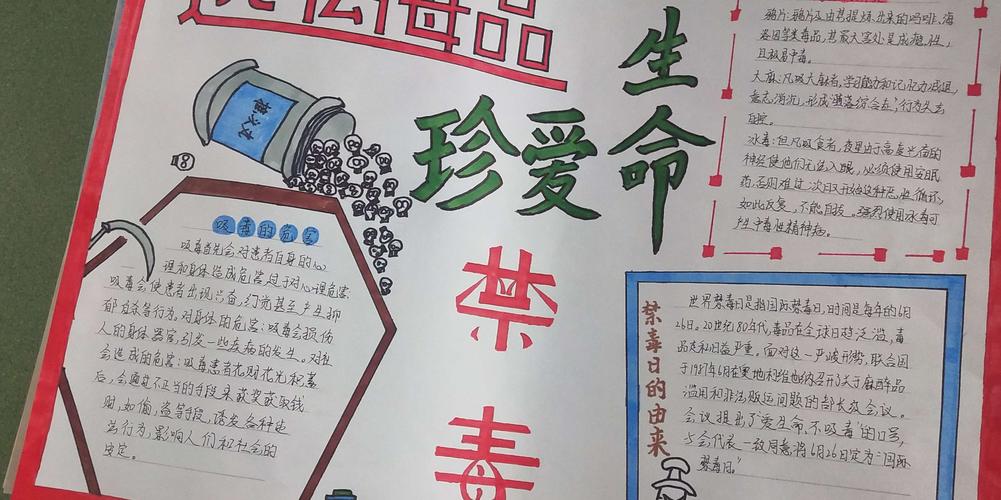 远离毒品
珍爱生命
禁毒
吸毒的危害
吸毒首先会对患者自身的心
理和身体造成危害,对于对心理危害:
吸毒会使患者出现兴奋,幻觉甚至产生抑
郁自杀等行为。对身体的危害:吸毒会损伤
人的身体器官,引发一些疾病的发生。对社
会造成的危害:吸毒患者花财花光积蓄
后,会通过不正当的手段来获奖获取钱
财,如偷,盗等手段,诱发各种违
法行为,影响人们和社会的
安定。
鸦片:鸦片及由其提炼出来的吗啡、海
洛因等类毒品,其最大害处是成瘾性,
且极易中毒。
大麻:凡吸大麻者,学习能力和记忆力减退,
意志消沉,形成堕落综合症,行为失去
自控。
冰毒:但凡吸食者,夜里由于高度兴奋的
神经使他们无法入眠,必须使用安眠
药,否则难过,次日又开始这种恶性循环,
如此反复,不能自拔。强烈使用冰毒可
产生中毒性精神病。
禁毒日的由来
世界禁毒日是指国际禁毒日,时间是每年的6月
26日。20世纪80年代,毒品在全球日趋泛滥,毒
品走私日益严重。面对这一严峻形势,联合国
于1987年6月在奥地利维也纳召开了关于麻醉品
滥用和非法贩运问题的部长级会议。
会议提出了"爱生命,不吸毒"的口号,
与会代表一致同意将6月26日定为"国际
禁毒日"